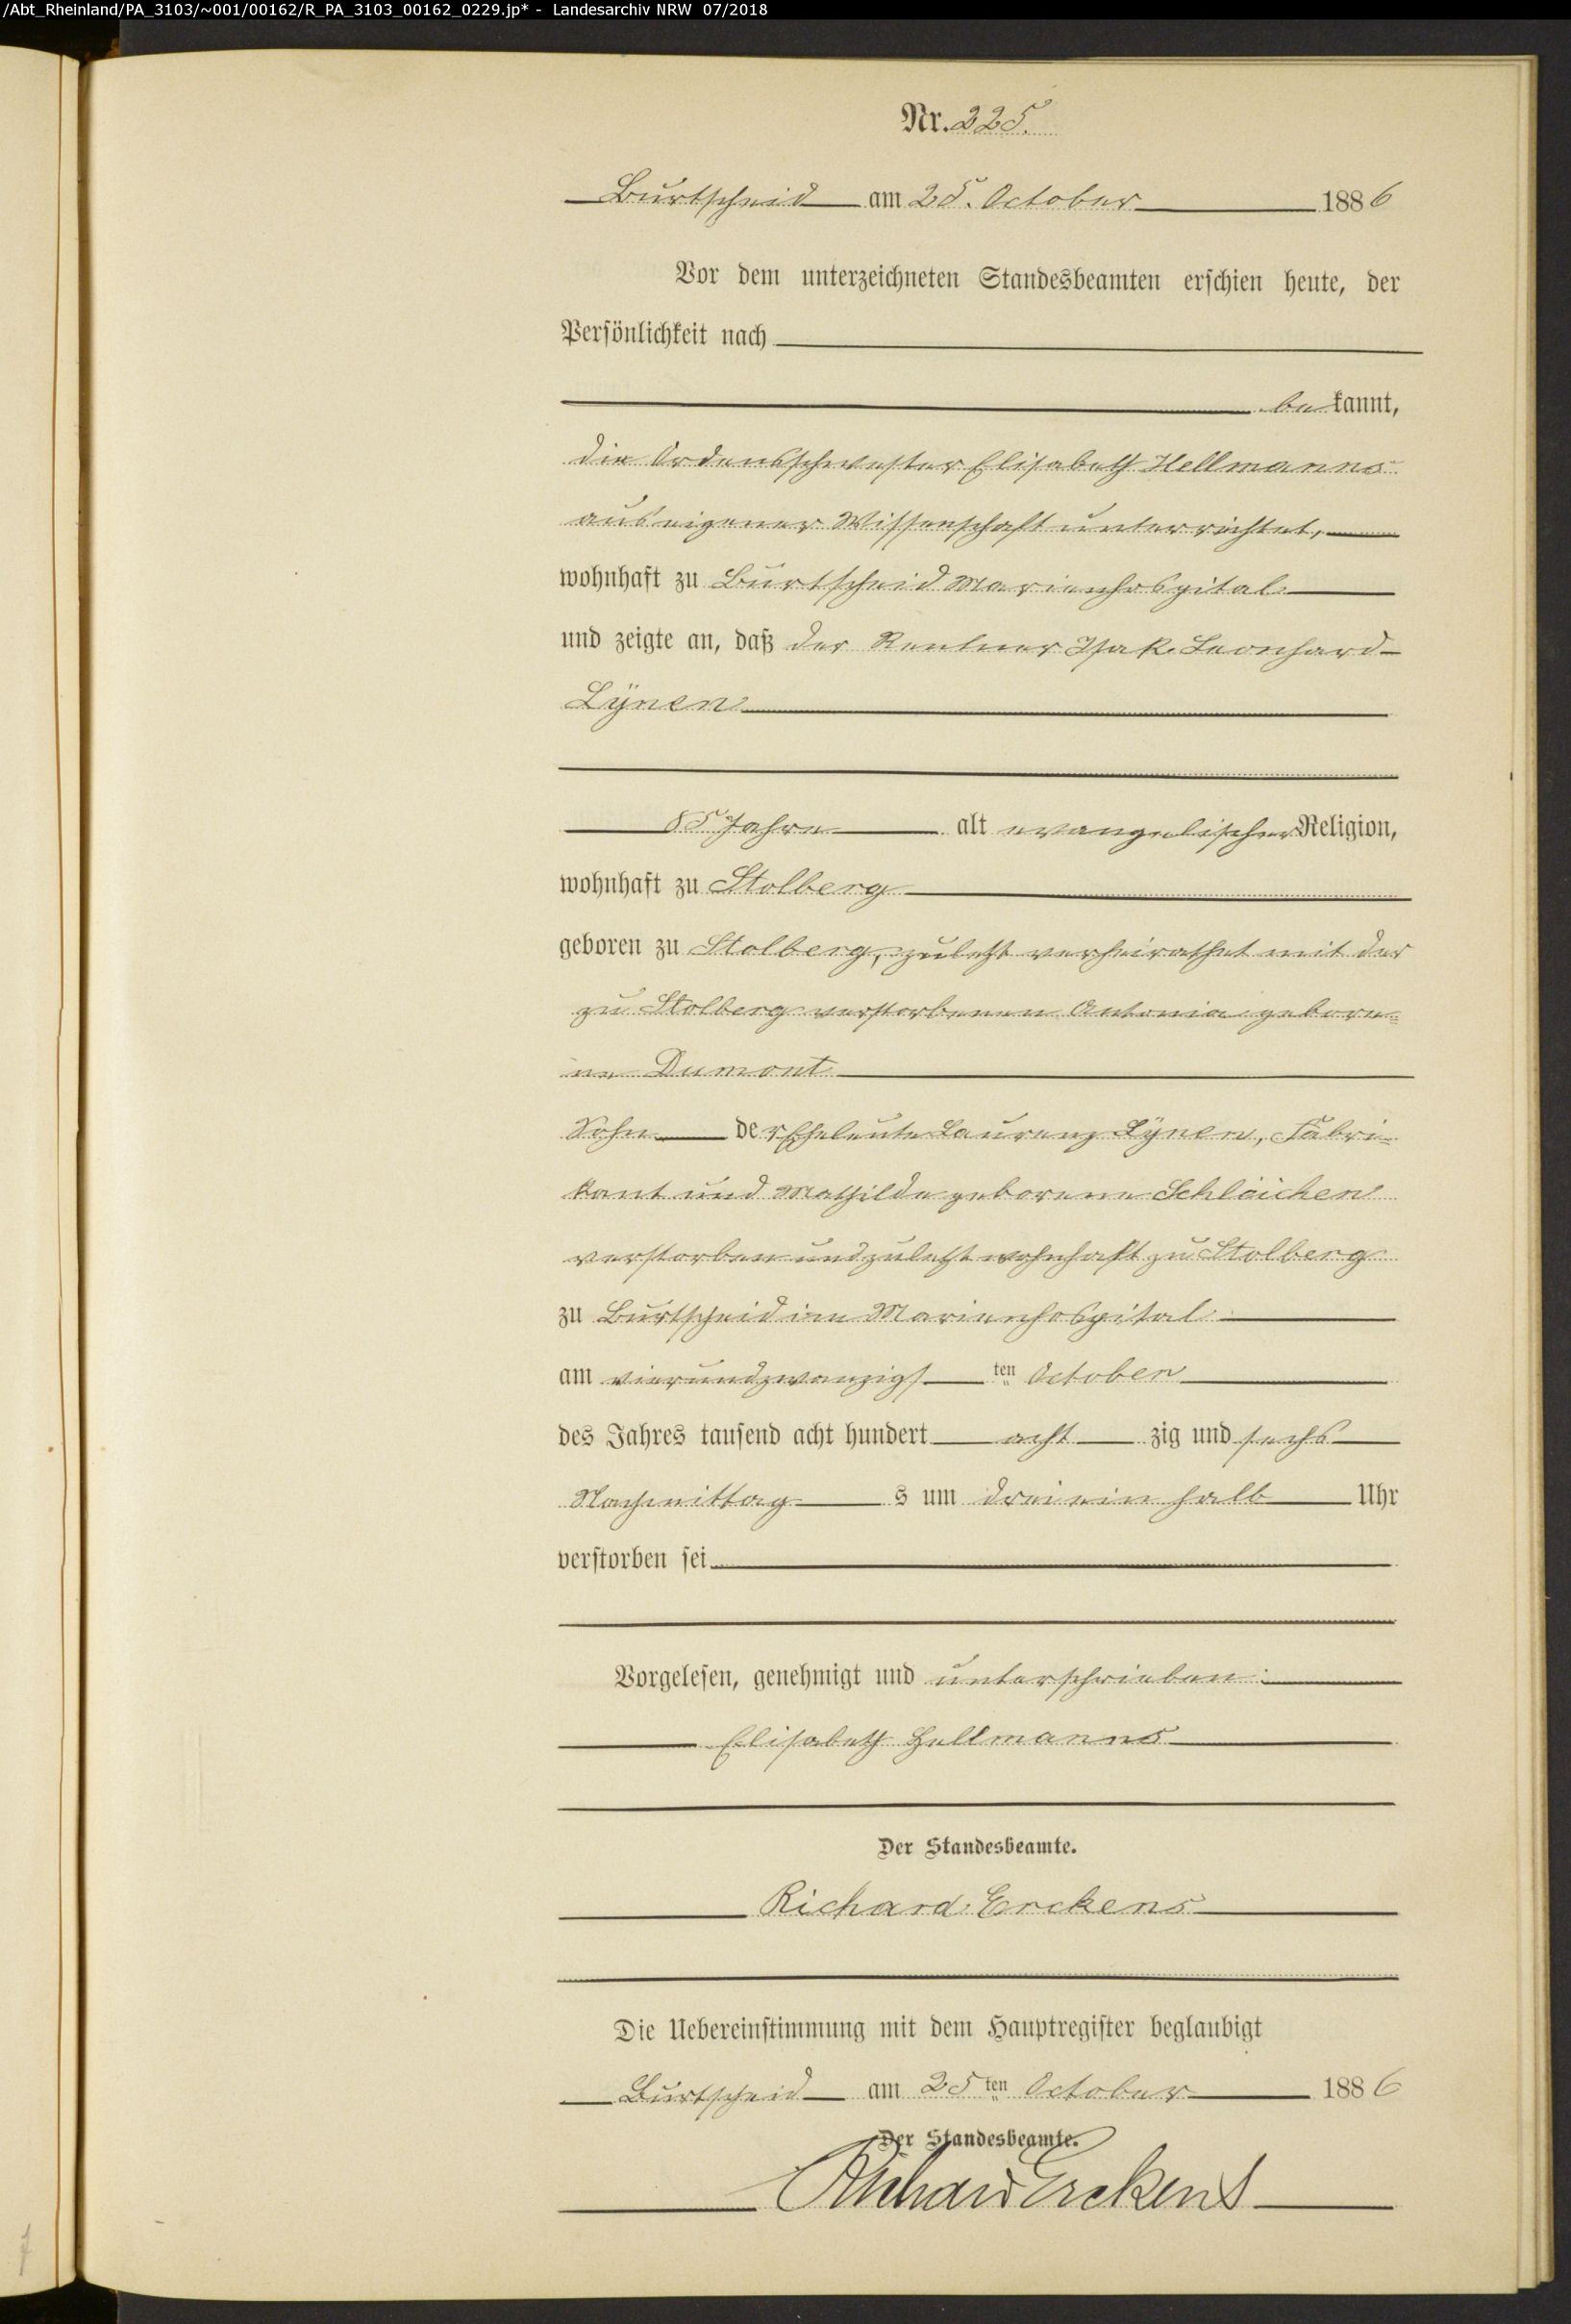 /Abt_Rheinland/PA_3103/~001/00162/R_PA_3103_00162_0229.jp* - Landesarchiv NRW 07/2018
Nr. 225.
Burtscheid am 25. October 1886
Vor dem unterzeichneten Standesbeamten erschien heute, der
Persönlichkeit nach
bekannt,
die Ordensschwester Elisabeth Hellmanns
aus eigener Wissenschaft unterrichtet,
wohnhaft zu Burtscheid Marienhospital
und zeigte an, daß der Rentner Isak Leonhard
Lÿnen
85 Jahre alt evangelischer Religion,
wohnhaft zu Stolberg
geboren zu Stolberg, zuletzt verheirathet mit der
zu Stolberg verstorbenen Antonia gebore=
ne Dumont
Sohn der Eheleute Laurenz Lÿnen, Fabri=
kant und Mathilde geborene Schleicher
verstorben und zuletzt wohnhaft zu Stolberg
zu Burtscheid im Marienhospital
am vierundzwanzigsten October
des Jahres tausend acht hundert achtzig und sechs
Nachmittags um drei ein halb Uhr
verstorben sei
Vorgelesen, genehmigt und unterschrieben:
Elisabeth Hellmanns
Der Standesbeamte.
Richard Erckens
Die Uebereinstimmung mit dem Hauptregister beglaubigt
Burtscheid am 25ten October 1886
Der Standesbeamte.
Richard Erckens